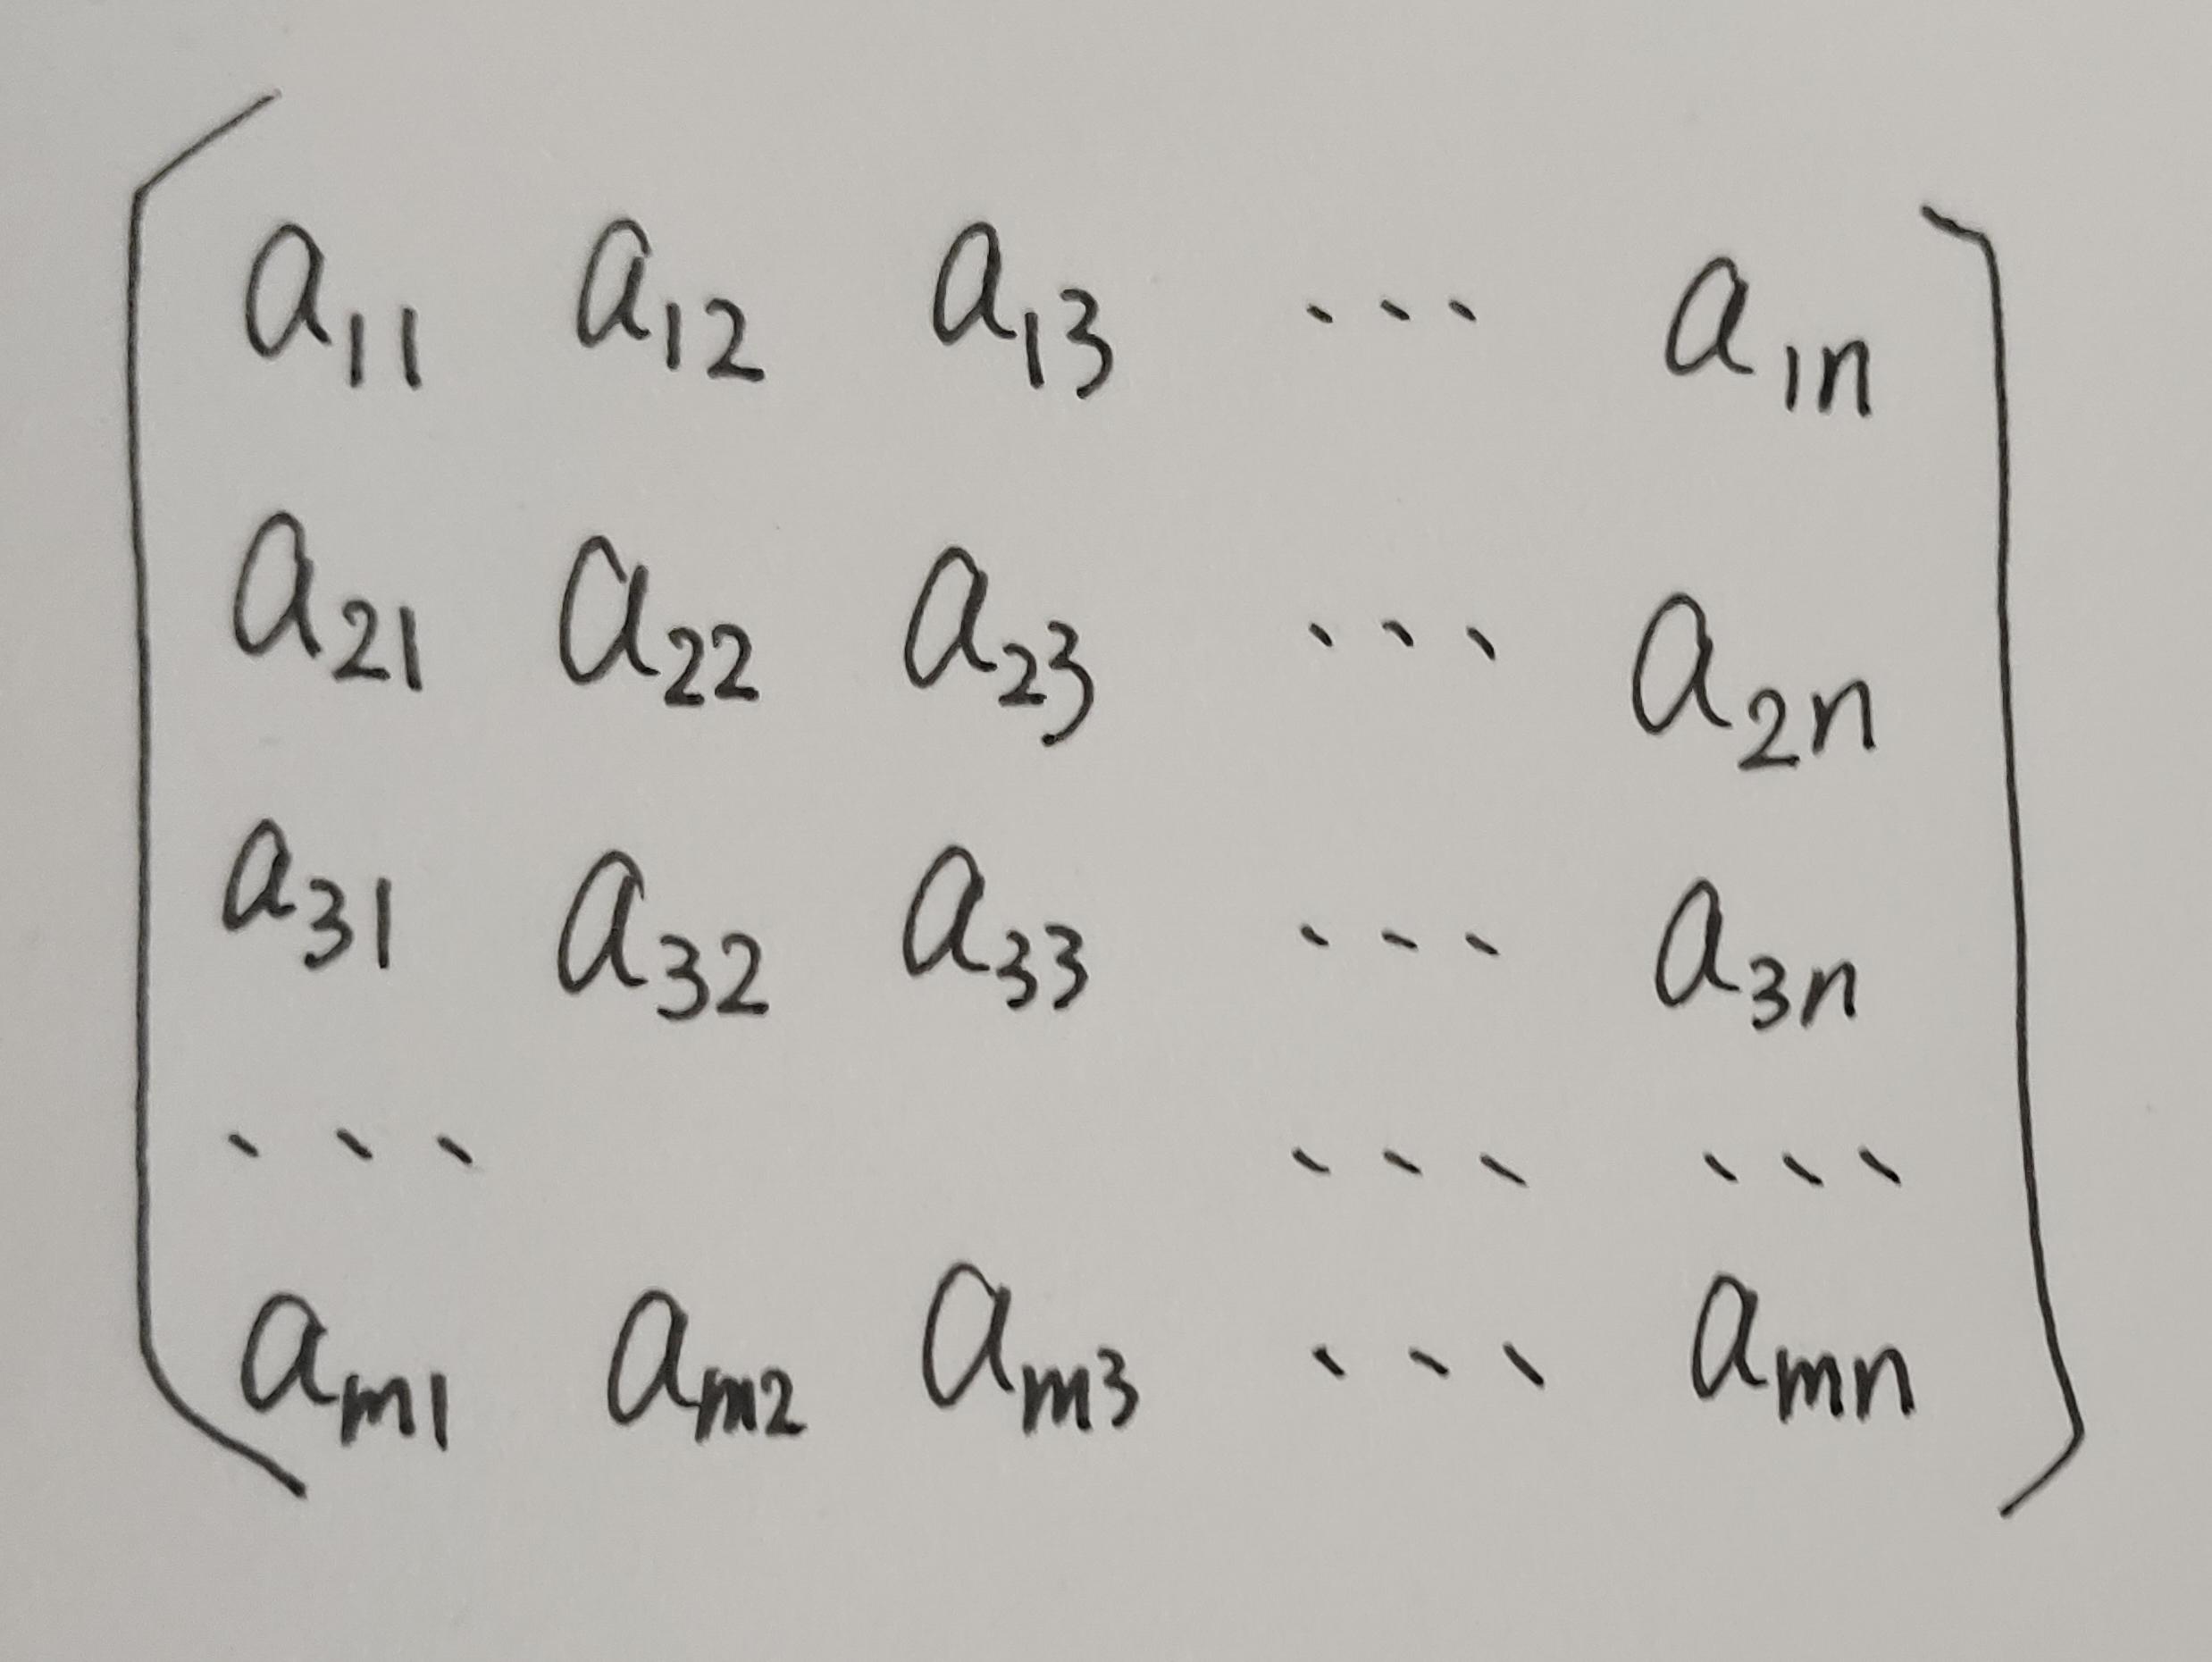 a₁₁ a₁₂ a₁₃ ... a₁ₙ
a₂₁ a₂₂ a₂₃ ... a₂ₙ
a₃₁ a₃₂ a₃₃ ... a₃ₙ
... ... ...
aₘ₁ aₘ₂ aₘ₃ ... aₘₙ